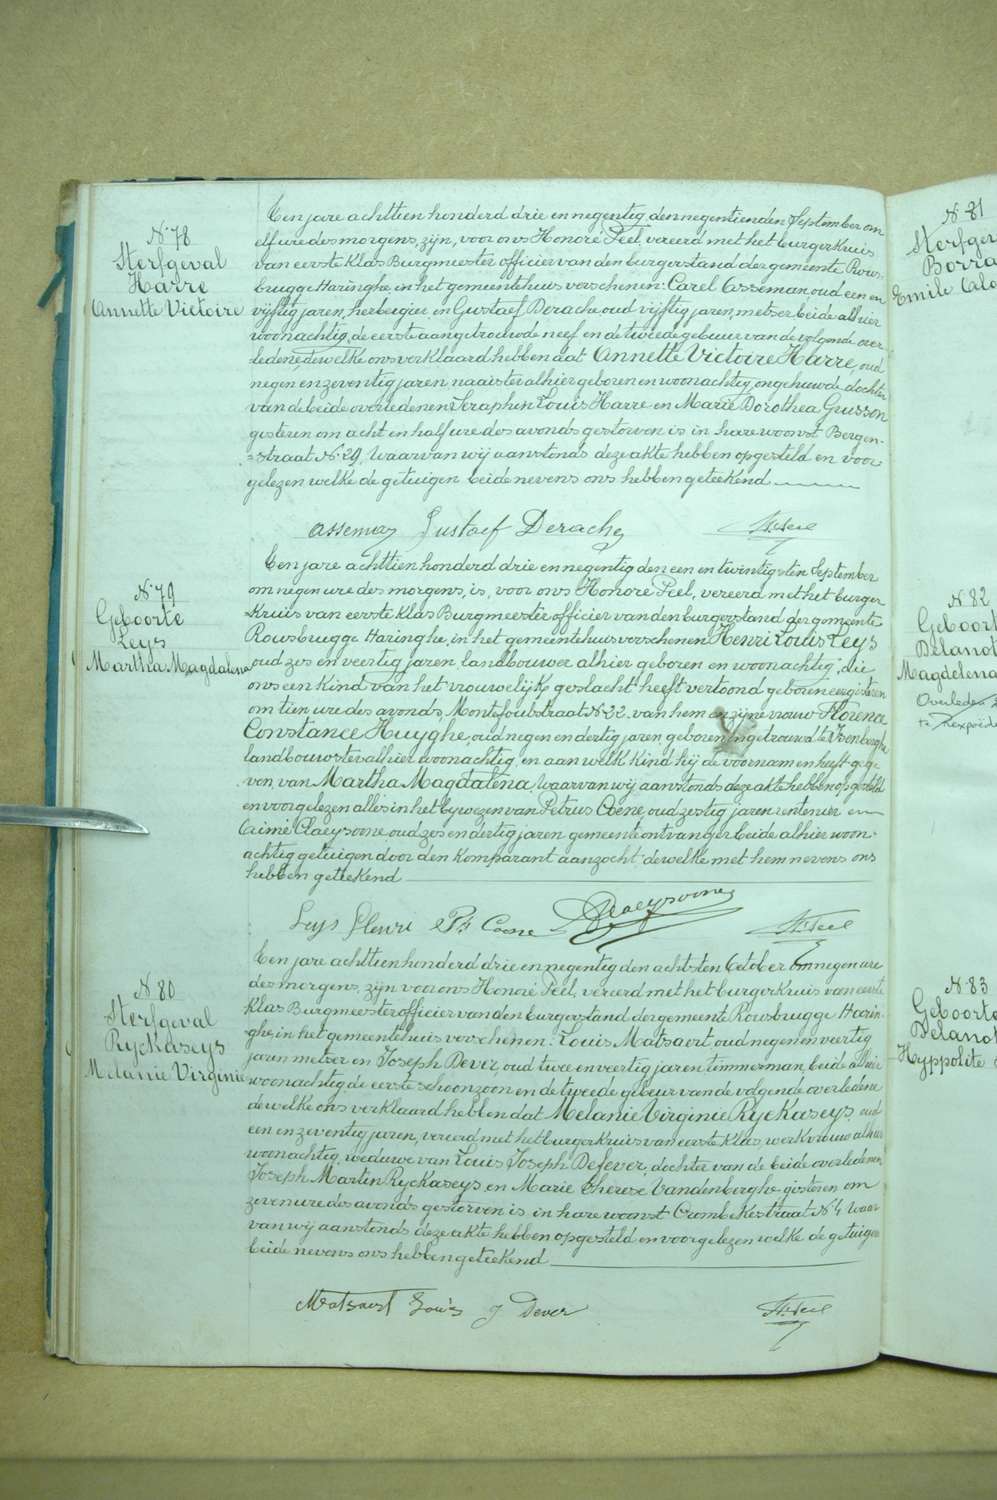 N. 78
Sterfgeval
Harre
Annette Victoire
Ten jare achttien honderd drie en negentig, den negentienden September om
elf ure des morgens, zijn, voor ons Honoré Peel, vereerd met het burgerkruis
van eerste klas Burgmeester officier van den burgerstand der gemeente Rous-
brugge Haringhe, in het gemeentehuis verschenen: Carel Asseman oud een en
vijftig jaren, herbergier en Gustaef Derache oud vijftig jaren, metser beide alhier
woonachtig, de eerste aangetrouwde neef en de tweede gebuur van de volgende over-
ledene, dewelke ons verklaard hebben dat Annette Victoire Harre, oud
negen en zeventig jaren naaister alhier geboren en woonachtig, ongehuwde dochter
van de beide overledenen Seraphin Louis Harre en Marie Dorothea Gusson
gisteren om acht en half ure des avonds gestorven is in hare woonst Bergen-
=straat N. 29, Waarvan wij aanstonds deze akte hebben opgesteld en voor-
gelezen welke de getuigen beide nevens ons hebben geteekend
Asseman Gustaef Derache H. Peel
N. 79
Geboorte
Leys
Martha Magdalena
Ten jare achttien honderd drie en negentig den een en twintigsten September
om negen ure des morgens, is, voor ons Honoré Peel, vereerd met het burger
kruis van eerste klas Burgmeester officier van den burgerstand der gemeente
Rousbrugge Haringhe, in het gemeentehuis verschenen Henri Louis Leys
oud zes en veertig jaren, landbouwer alhier geboren en woonachtig, die
ons een kind van het vrouwelijk geslacht heeft vertoond geboren eergisteren
om tien ure des avonds, straat N. 22. van hem en zijne vrouw Florence
Constance Huyghe, oud negen en dertig jaren geboren en getrouwd te Isenberghe
landbouwster alhier woonachtig, en aan welk kind hij de voornamen heeft gege-
ven, van Martha Magdalena, Waarvan wij aanstonds deze akte hebben opgesteld
en voorgelezen alles in het bywezen van Petrus Coene, oud zestig jaren rentenier en
Claeysoone oud zes en dertig jaren gemeente ontvanger beide alhier woon-
achtig getuigen door den komparant aanzocht dewelke met hem nevens ons
hebben geteekend
Leys Henri P. Coene Claeysoone H. Peel
N. 80
Sterfgeval
Ryckaseys
Melanie Virginie
Ten jare achttien honderd drie en negentig den achtsten October om negen ure
des morgens, zijn voor ons Honoré Peel, vereerd met het burgerkruis van eerste
klas Burgmeester officier van den burgerstand der gemeente Rousbrugge Harin-
ghe, in het gemeentehuis verschenen: Louis Matsaert oud negen en veertig
jaren metser en Joseph Dever, oud twee en veertig jaren timmerman beide alhier
woonachtig, de eerste schoonzoon en de tweede gebuur van de volgende overledene
dewelke ons verklaard hebben dat Melanie Virginie Ryckaseys, oud
een en zeventig jaren, vereerd met het burgerkruis van eerste klas, werkvrouw alhier
woonachtig, weduwe van Louis Joseph Defever, dochter van de beide overledenen
Joseph Martin Ryckaseys en Marie Therese Vandenberghe gisteren om
zeven ure des avonds gestorven is in hare woonst Crombekestraat N. 4 Waar-
van wij aanstonds deze akte hebben opgesteld en voorgelezen welke de getuigen
beide nevens ons hebben geteekend
Matsaert Louis J Dever H. Peel
N. 81
Sterfge
Borra
Emile
N. 82
Geboort
Delanot
Magdelena
Overleden
te
N. 83
Geboorte
Delanot
Hyppolite